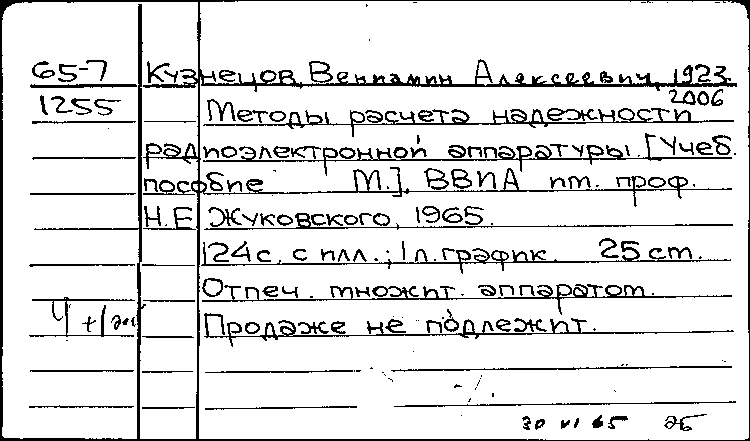 65-7 Кузнецов, Вениамин Алексеевич, 1923-
1255 2006
Методы расчета надежности
радиоэлектронной аппаратуры. [Учеб.
пособие М.], ВВИА им. проф.
Н.Е Жуковского, 1965.
124 с. с илл.; 1 л. график. 25 см.
Отпеч. множит. аппаратом.
Ч Продаже не подлежит.
30 VI 65